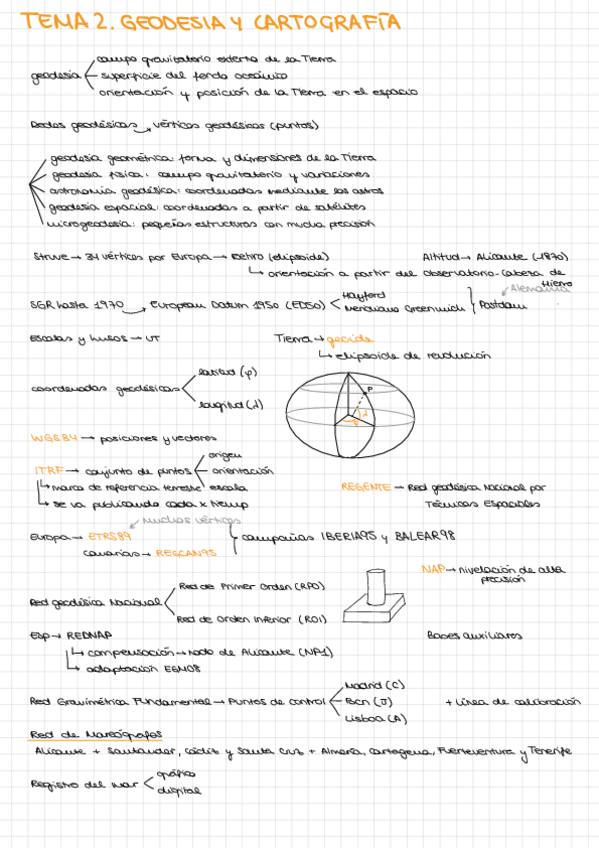 TEMA 2. GEODESIA Y CARTOGRAFÍA
campo gravitatorio externo de la Tierra
geodesia superficie del fondo oceánico
orientación y posición de la Tierra en el espacio
Redes geodésicas vértices geodésicos (puntos)
geodesia geométrica: forma y dimensiones de la Tierra
geodesia física: campo gravitatorio y variaciones
astronomía geodésica: coordenadas mediante los astros
geodesia espacial: coordenadas a partir de satélites
microgeodesia: pequeñas estructuras con mucha precisión
Struve → 34 vértices por Europa → Retiro (elipsoide) Altitud → Alicante (1870)
↳ orientación a partir del Observatorio-Cabeza de Hierro
Alemania
SGR hasta 1970 European Datum 1950 (ED50) Hayford
Meridiano Greenwich Postdam
Escalas y husos → UT Tierra → geoide
↳ elipsoide de revolución
latitud (φ)
coordenadas geodésicas
longitud (λ)
P
λ
φ
WGS84 → posiciones y vectores
origen
ITRF → conjunto de puntos orientación
↳ marco de referencia terrestre escala
REGENTE → Red geodésica Nacional por
Técnicas Espaciales
↳ se va publicando cada x tiemp
muchos vértices
Europa → ETRS89 campañas IBERIA95 y BALEAR98
canarias → REGCAN95
NAP → nivelación de alta
precisión
Red de Primer Orden (RPO)
Red geodésica Nacional
Red de Orden Inferior (ROI)
Esp → REDNAP Bases auxiliares
↳ compensación → Nodo de Alicante (NP1)
↳ adaptación EGM08
Madrid (C)
Red Gravimétrica Fundamental → Puntos de control Bcn (J) + Línea de calibración
Lisboa (A)
Red de Mareógrafos
Alicante + Santander, Cádiz y Santa Cruz + Almería, Cartagena, Fuerteventura y Tenerife
gráfico
Registro del mar
digital